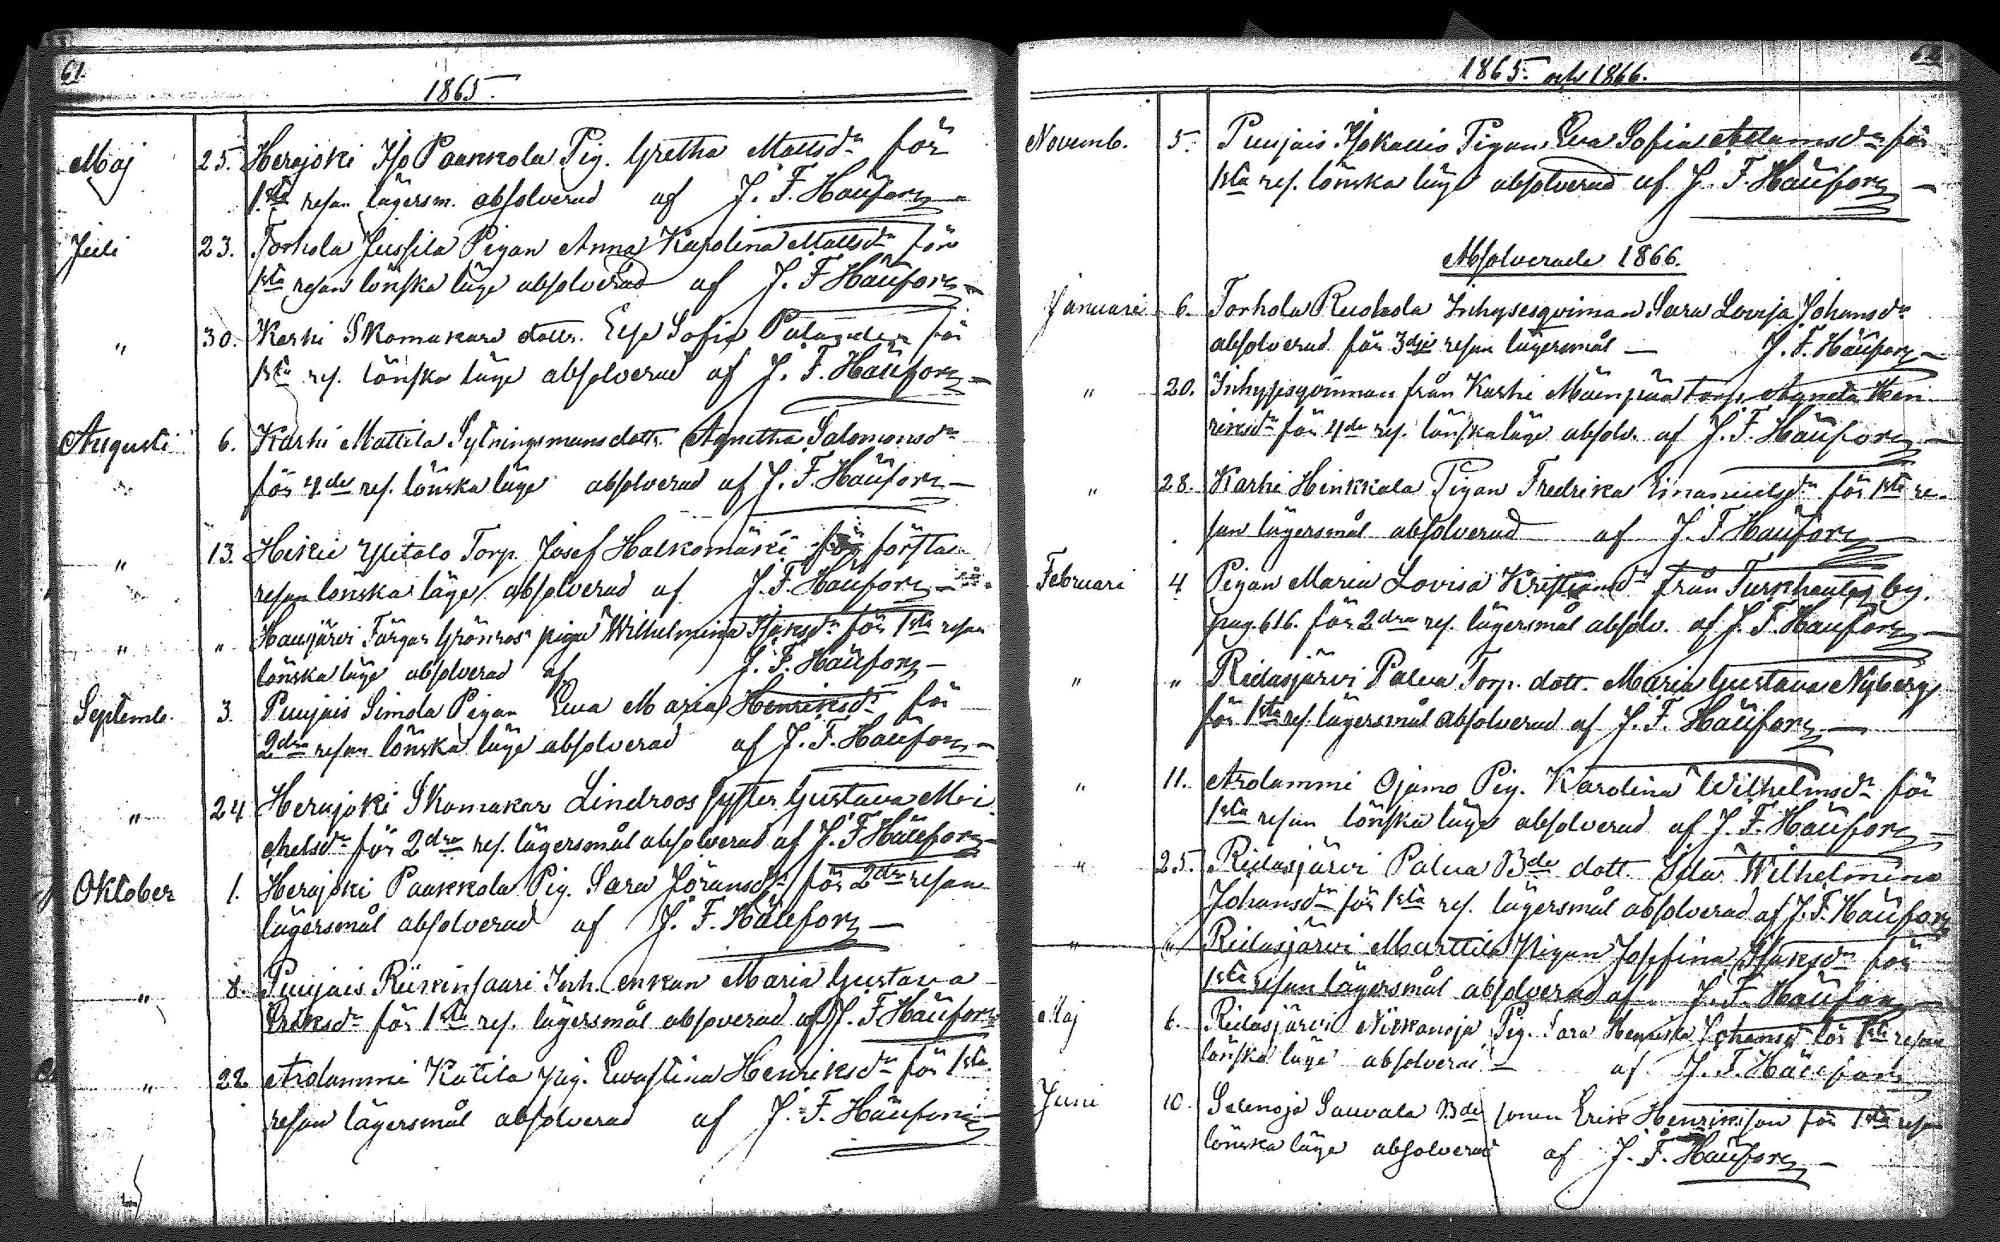 61.
1865.
Maj 25. Herajoki Iso Paakkola Pig. Gretha Mattsdr för
1sta resan lägersm. absolverad af J. F. Häufors
Juli 23. Torhola Jussila Pigan Anna Karolina Mattsdr för
1sta resan lönska läge absolverad af J. F. Häufors
" 30. Karhi Skomakare dottr. Eva Sofia för
1sta res. lönska läge absolverad af J. F. Häufors
Augusti 6. Karhi Mattila Sytningsmans dottr. Agnetha Salomonsdr
för 4de res. lönska läge absolverad af J. F. Häufors
" 13. Hikiä Ylitalo Torp. Josef Halkomäki för första
resan lönska läge absolverad af J. F. Häufors
" " Hausjärvi Färgar Grönroos piga Wilhelmina Isaksdr för 1sta resan
lönska läge absolverad af J. F. Häufors
Septemb. 3. Puujais Simola Pigan Ewa Maria Henriksdr för
2dra resan lönska läge absolverad af J. F. Häufors
" 24 Herajoki Skomakar Lindroos syster Gustava Mi-
chelsdr för 2dra res. lägersmål absolverad af J. F. Häufors
Oktober 1. Herajoki Paakkola Pig. Sara Göransdr för 2dra resan
lägersmål absolverad af J. F. Häufors
" 8. Puujais Riikinsaari Inh. enkan Maria Gustava
Eriksdr för 1sta res. lägersmål absoverad af J. F. Häufors
" 22 Arolammi Katila pig. Evastina Henriksdr för 1sta
resan lägersmål absolverad af J. F. Häufors
62
1865. och 1866.
Novemb. 5. Puujais Isokallio Pigan Eva Sofia Adamsdr för
1sta res. lönska läge absolverad af J. F. Häufors
Absolverade 1866.
Januari 6. Torhola Ruskola Inhysesqvinnan Sara Lovisa Johansdr
absolverad för 3dje resan lägersmål J. F. Häufors
" 20. Inhysesqvinnan från Karhi Mäenpää torp Agneta Hen-
riksdr för 4de res. lönska läge absolv. af J. F. Häufors
" 28. Karhi Hinkkala Pigan Fredrika Emanuelsdr för 1sta re-
san lägersmål absolverad af J. F. Häufors
Februari 4 Pigan Maria Lovisa från Turkhauta by.
pag. 616. för 2dra res. lägersmål absolv. af J. F. Häufors
" " Ridasjärvi Palua Torp. dott. Maria Gustava Nyberg
för 1sta res. lägersmål absolverad af J. F. Häufors
" 11. Arolammi Ojamo Pig. Karolina Wilhelmsdr för
1sta resan lönska läge absolverad af J. F. Häufors
" 25. Ridasjärvi Palua Bde dott. Ida Wilhelmina
Johansdr för 1sta res. lägersmål absolverad af J. F. Häufors
" " Ridasjärvi Marttila Pigan Josefina Isaksdr för
1sta resan lägersmål absolverad af J. F. Häufors
Maj 6. Ridasjärvi Pig. Sara Johansdr för 1sta resan
lönska läge absolverad af J. F. Häufors
Juni 10. Selenoja Sauvala Bde sonen Erik Henriksson för 1sta resan
lönska läge absolverad af J. F. Häufors